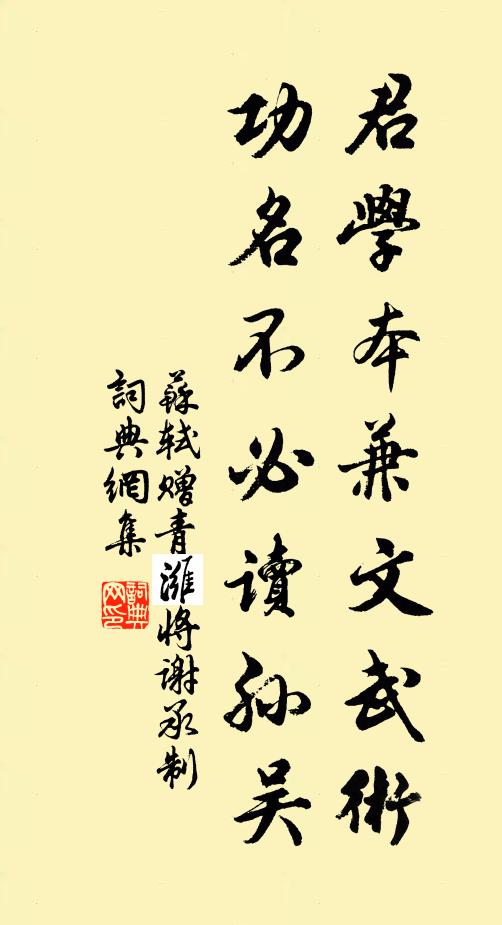 君學本兼文武術
功名不必讀孫吴
蘇軾贈青濰將謝承制
詞典網集
詞典网印